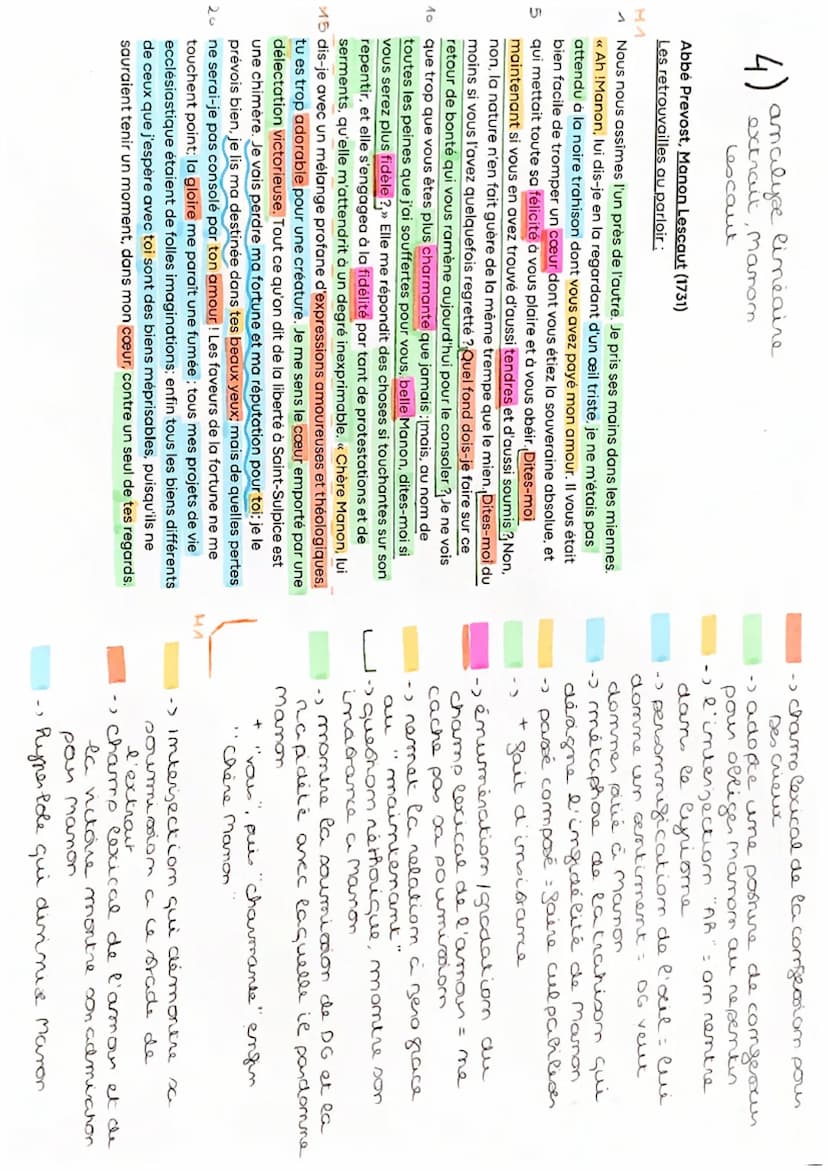 4) analyse linéaire
extrait, Manon
Lescaut
Abbé Prevost, Manon Lescaut (1731)
Les retrouvailles au parloir :
M1
1 Nous nous assîmes l'un près de l'autre. Je pris ses mains dans les miennes.
« Ah !Manon, lui dis-je en la regardant d'un œil triste, je ne m'étais pas
attendu à la noire trahison dont vous avez payé mon amour. Il vous était
bien facile de tromper un cœur dont vous étiez la souveraine absolue, et
5 qui mettait toute sa félicité à vous plaire et à vous obéir. Dites-moi
maintenant si vous en avez trouvé d'aussi tendres et d'aussi soumis ? Non,
non, la nature n'en fait guère de la même trempe que le mien. Dites-moi du
moins si vous l'avez quelquefois regretté ? Quel fond dois-je faire sur ce
retour de bonté qui vous ramène aujourd'hui pour le consoler ? Je ne vois
10 que trop que vous êtes plus charmante que jamais ; mais, au nom de
toutes les peines que j'ai souffertes pour vous, belle Manon, dites-moi si
vous serez plus fidèle ?.» Elle me répondit des choses si touchantes sur son
repentir, et elle s'engagea à la fidélité par tant de protestations et de
serments, qu'elle m'attendrit à un degré inexprimable. « Chère Manon, lui
15 dis-je avec un mélange profane d'expressions amoureuses et théologiques,
tu es trop adorable pour une créature. Je me sens le cœur emporté par une
délectation victorieuse. Tout ce qu'on dit de la liberté à Saint-Sulpice est
une chimère. Je vais perdre ma fortune et ma réputation pour toi; je le
prévois bien, je lis ma destinée dans tes beaux yeux; mais de quelles pertes
20 ne serai-je pas consolé par ton amour ! Les faveurs de la fortune ne me
touchent point; la gloire me paraît une fumée ; tous mes projets de vie
ecclésiastique étaient de folles imaginations; enfin tous les biens différents
de ceux que j'espère avec toi sont des biens méprisables, puisqu'ils ne
sauraient tenir un moment, dans mon cœur, contre un seul de tes regards.
-> champ lexical de la confession pour
-> adopte une posture de confesseur
pour obliger Manon au repentir
-> l'interjection "Ah" = on rentre
dans le lyrisme
-> personnification de l'œil = lui
donne un sentiment = DG veut
donner pitié à Manon
-> métaphore de la trahison qui
désigne l'infidélité de Manon
-> passé composé = faire culpabiliser
-> + fait d'insistance
-> énumération / gradation du
champ lexical de l'amour = ne
cache pas sa soumission
-> remet la relation à zero grace
au "maintenant"
-> question réthorique, montre son
à Manon
-> montre la soumission de DG et la
rapidité avec laquelle il pardonne
Manon
+ "vous", puis "charmante" enfin
"chère Manon"
M1
-> interjection qui démontre sa
soumission a ce stade de
l'extrait
-> champ lexical de l'amour et de
la victoire montre son admiration
pour Manon
-> hyperbole qui Manon